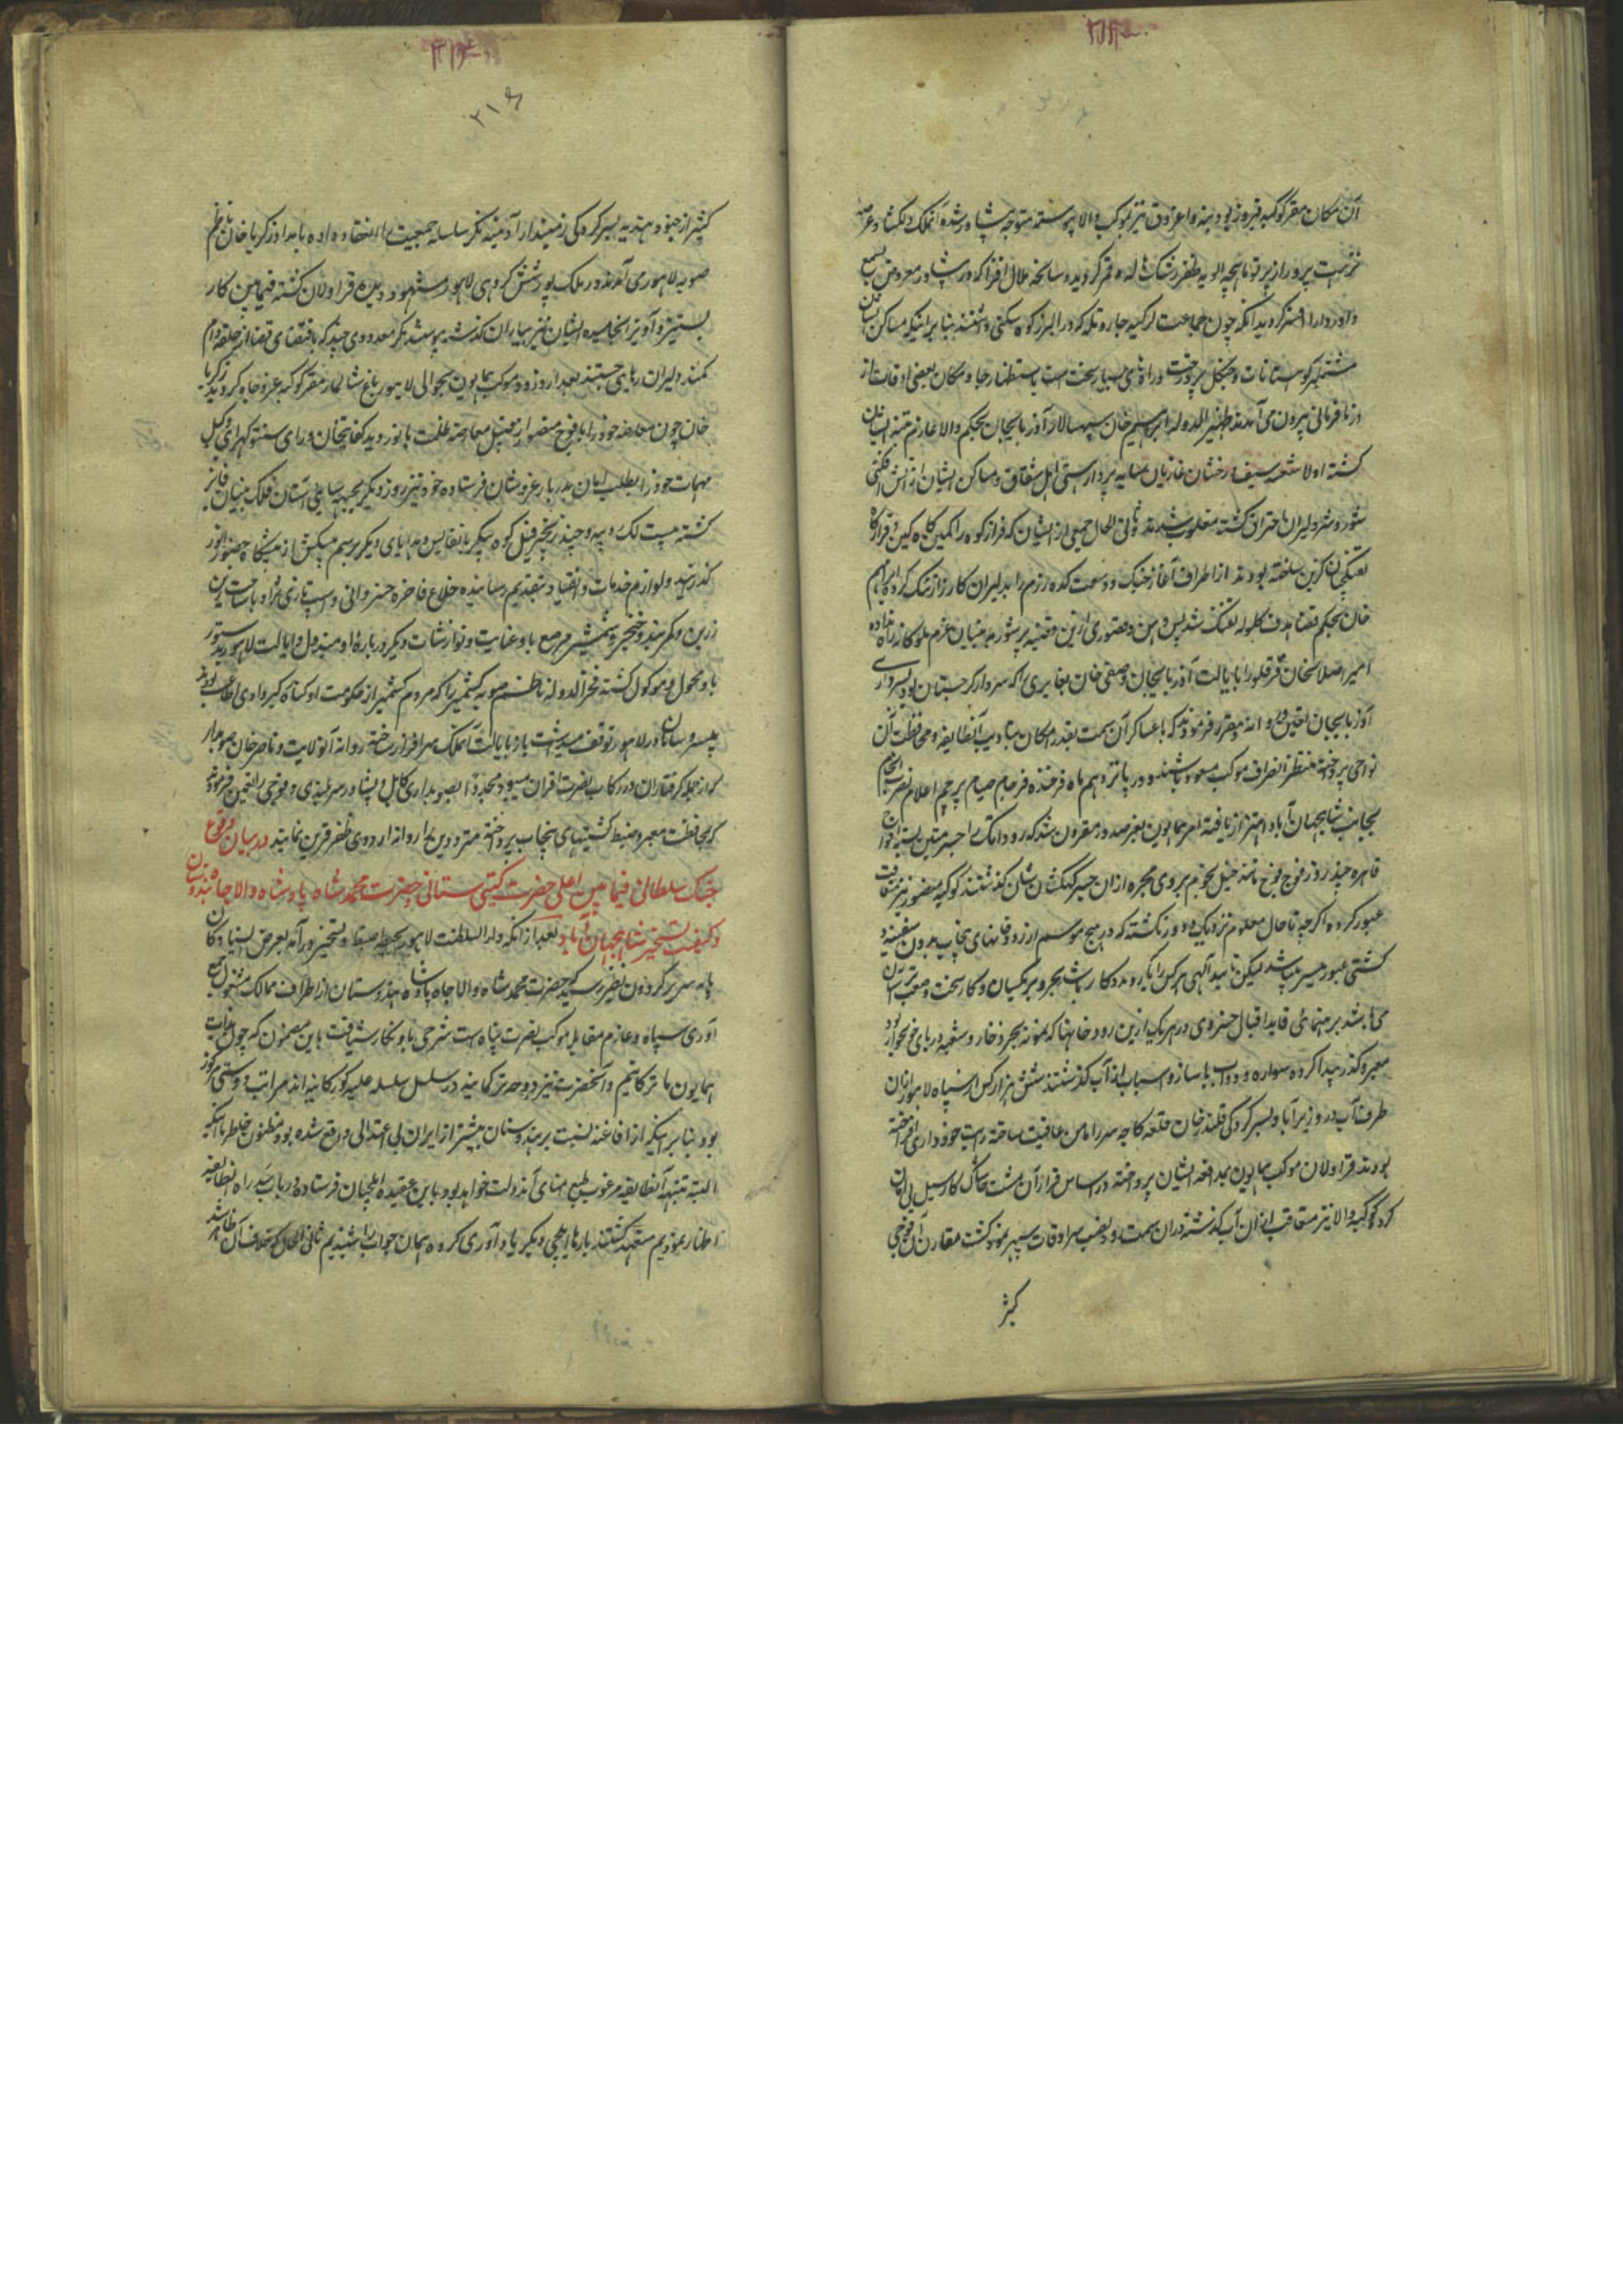 آن مکان مقر کوکبه فیروز بود بنه و اغروق نیز بموکب والا پیوسته متوجه پشاور شده آنملک دلکشا و عرصه
نزهت پیرور از پرتو ماهچه الویه ظفر رشک ماه و قمر گردید و سانحه ملال افزا که در پشاور معروض مسامع
کوهستانات و جنگل پر درخت و راه های بسیار سخت است باستظهار جا و مکان بعضی اوقات از
در نافرمانی بیرون می آمدند ظهیر الدوله ابراهیم خان سپهسالار آذربایجان بحکم والا عازم تنبیه ایشان
گشته اولا شعله سیف درخشان غازیان
شور و شر دلیران احتراق گشته مغلوب شدند ثانی الحال جمعی از ایشان که فراز کوه را کمین گاه کین و قرارگاه
تفنگچیان کزین ساخته بودند از اطراف آغاز جنگ و وسعت کده رزم را بدلیران کارزار تنگ کرده ابراهیم
خان بحکم قضا هدف گلوله تفنگ شد پس وهن و قصوری ازین قضیه پرشور به بنیان عزم ملوکانه راه نداده
امیر اصلان خان قرقلو را بایالت آذربایجان و صفی خان بغایری را که سردار گرجستان بود بسرداری
آذربایجان تعیین و روانه و مقرر فرمودند که با عساکر آن سمت بقدر امکان بتادیب آنطایفه و محافظت آن
نواحی پرداخته منتظر انصراف موکب مسعود باشند و در پانزدهم ماه فرخنده فرجام صیام پرچم اعلام نصرت انجام
بجانب شاهجهان آباد اهتزاز یافته امر همایون بعز صدور مقرون شد که رود اتک را جسر متین بسته افواج
قاهره چند روز فوج فوج مانند خیل نجوم بروی مجره از آن جسر کهکشان نشان گذشتند کوکبه منصور نیز متعاقب
عبور کرده اگرچه تا حال معلوم نزدیک و دور نگشته که در هیچ موسم از رودخانهای پنجاب بدون سفینه و
کشتی عبور میسر باشد لیکن تایید الهی هرکس را یار و مددکار باشد بحر و بر یکسان و کار سخت و صعب آسان
می باشد برهنمائی قاید اقبال خسروی در هریک ازین رودخانها که نمونه بحر ذخار و شعبه دریای خونخوار بود
معبر و گذر پیدا کرده سواره و دواب با ساز و اسباب از آب گذشتند شش هزار کس از سپاه لاهور از آن
طرف آب در وزیر آباد بسرکردگی قلندر خان قلعه کاچه میرزا را مامن عافیت ساخته رایت خودداری افراخته
بودند قراولان موکب همایون بمدافعه ایشان پرداخته در اساس قرار آن مشت خاک کار سیل بی امان
کرد کوکبه والا نیز متعاقب از آن آب گذشته در آن سمت رود نصب سرادقات سپهر نمود گشت مقارن آن فوجی
کثیر
۲۱۶
کثیر از جنود هندیه بسرکردگی زمیندار آدینه نگر سلسله جمعیت را انعقاد داده بامداد زکریا خان ناظم
صوبه لاهور می آمدند در ملک پور شش کروهی لاهور مشهود دیده قراولان گشته فیما بین کار
بستیز و آویز انجامیده ایشان نیز بیاران گذشته پیوستند مگر معدودی چند که باقتضای قضا از حلقه دام
کمند دلیران رهایی جستند بعد از روزی دو موکب همایون بحوالی لاهور باغ شالمار مقر کوکبه عز و جاه گردید زکریا
خان چون معارضه خود را با فوج منصور از قبیل معارضه ظلمت با نور دید کفایتخان ورای سنتو کهری وکیل
مهمات خود را بطلب امان بدربار عز و شان فرستاده خود نیز روز دیگر بجبهه سایی آستان فلک بنیان فایز
گشته بیست لک روپیه و چند زنجیر فیل کوه پیکر با نفایس و هدایای دیگر برسم پیشکش از پیشگاه حضور انور
گذرانید و لوازم خدمات و انقیاد بتقدیم رسانیده خلاع فاخره خسروانی و اسب تازی نژاد با ساخت و یراق
زرین و کمربند و خنجر و شمشیر مرصع باو عنایت و نوازشات دیگر درباره او مبذول و ایالت لاهور بدستور
باو محول و موکول گشته فخر الدوله ناظم صوبه کشمیر را که مردم کشمیر از حکومت او کوتاه کرده وادی اطاعت بودند
بیسروسامان در لاهور توقف میداشت بار دیگر بایالت آنملک سرافراز ساخته روانه آنولایت و ناصر خان صوبه دار
که از جمله گرفتاران و در رکاب نصرت اقتران میبود مجددا بصوبداری کابل و پشاور سربلندی و فوجی را تعیین فرمودند
که بمحافظت معبر و ضبط کشتیهای پنجاب پرداخته مترددین را روانه اردوی ظفر قرین نمایند در بیان وقوع
جنگ سلطانی فیما بین اعلی حضرت گیتی ستانی و حضرت محمد شاه پادشاه والا جاه هندوستان
و کیفیت تسخیر شاهجهان آباد بعد از آنکه دار السلطنت لاهور بحیطه ضبط و تسخیر در آمد بعرض ایستادگان
پایه سریر گردون نظیر رسید که حضرت محمد شاه والا جاه پادشاه هندوستان از اطراف ممالک مشغول جمع
آوری سپاه و عازم مقابله موکب نصرت پناه است شرحی باو نگارش یافت باین مضمون که چون ذات
همایون ما ترکمانیم و آنحضرت نیز دوحه ترکمانیه در سلسل سلسله علیه گورکانیه اند مراتب دوستی مرکوز
بود بنابر اینکه از افاغنه نسبت بهندوستان بیشتر از ایران بی اعتدالی واقع شده بود مظنون خاطر ما اینکه
البته تنبیه آنطایفه مرغوب طبع امنای آندولت خواهد بود باین عقیده ایلچیان فرستاده در باب سد راه آنطایفه
اظهار نمودیم متعهد گشتند بارها ایلچی دیگر یادآوری کرده همان جواب را شنیدیم ثانی الحال که خلاف آن ظاهر شد